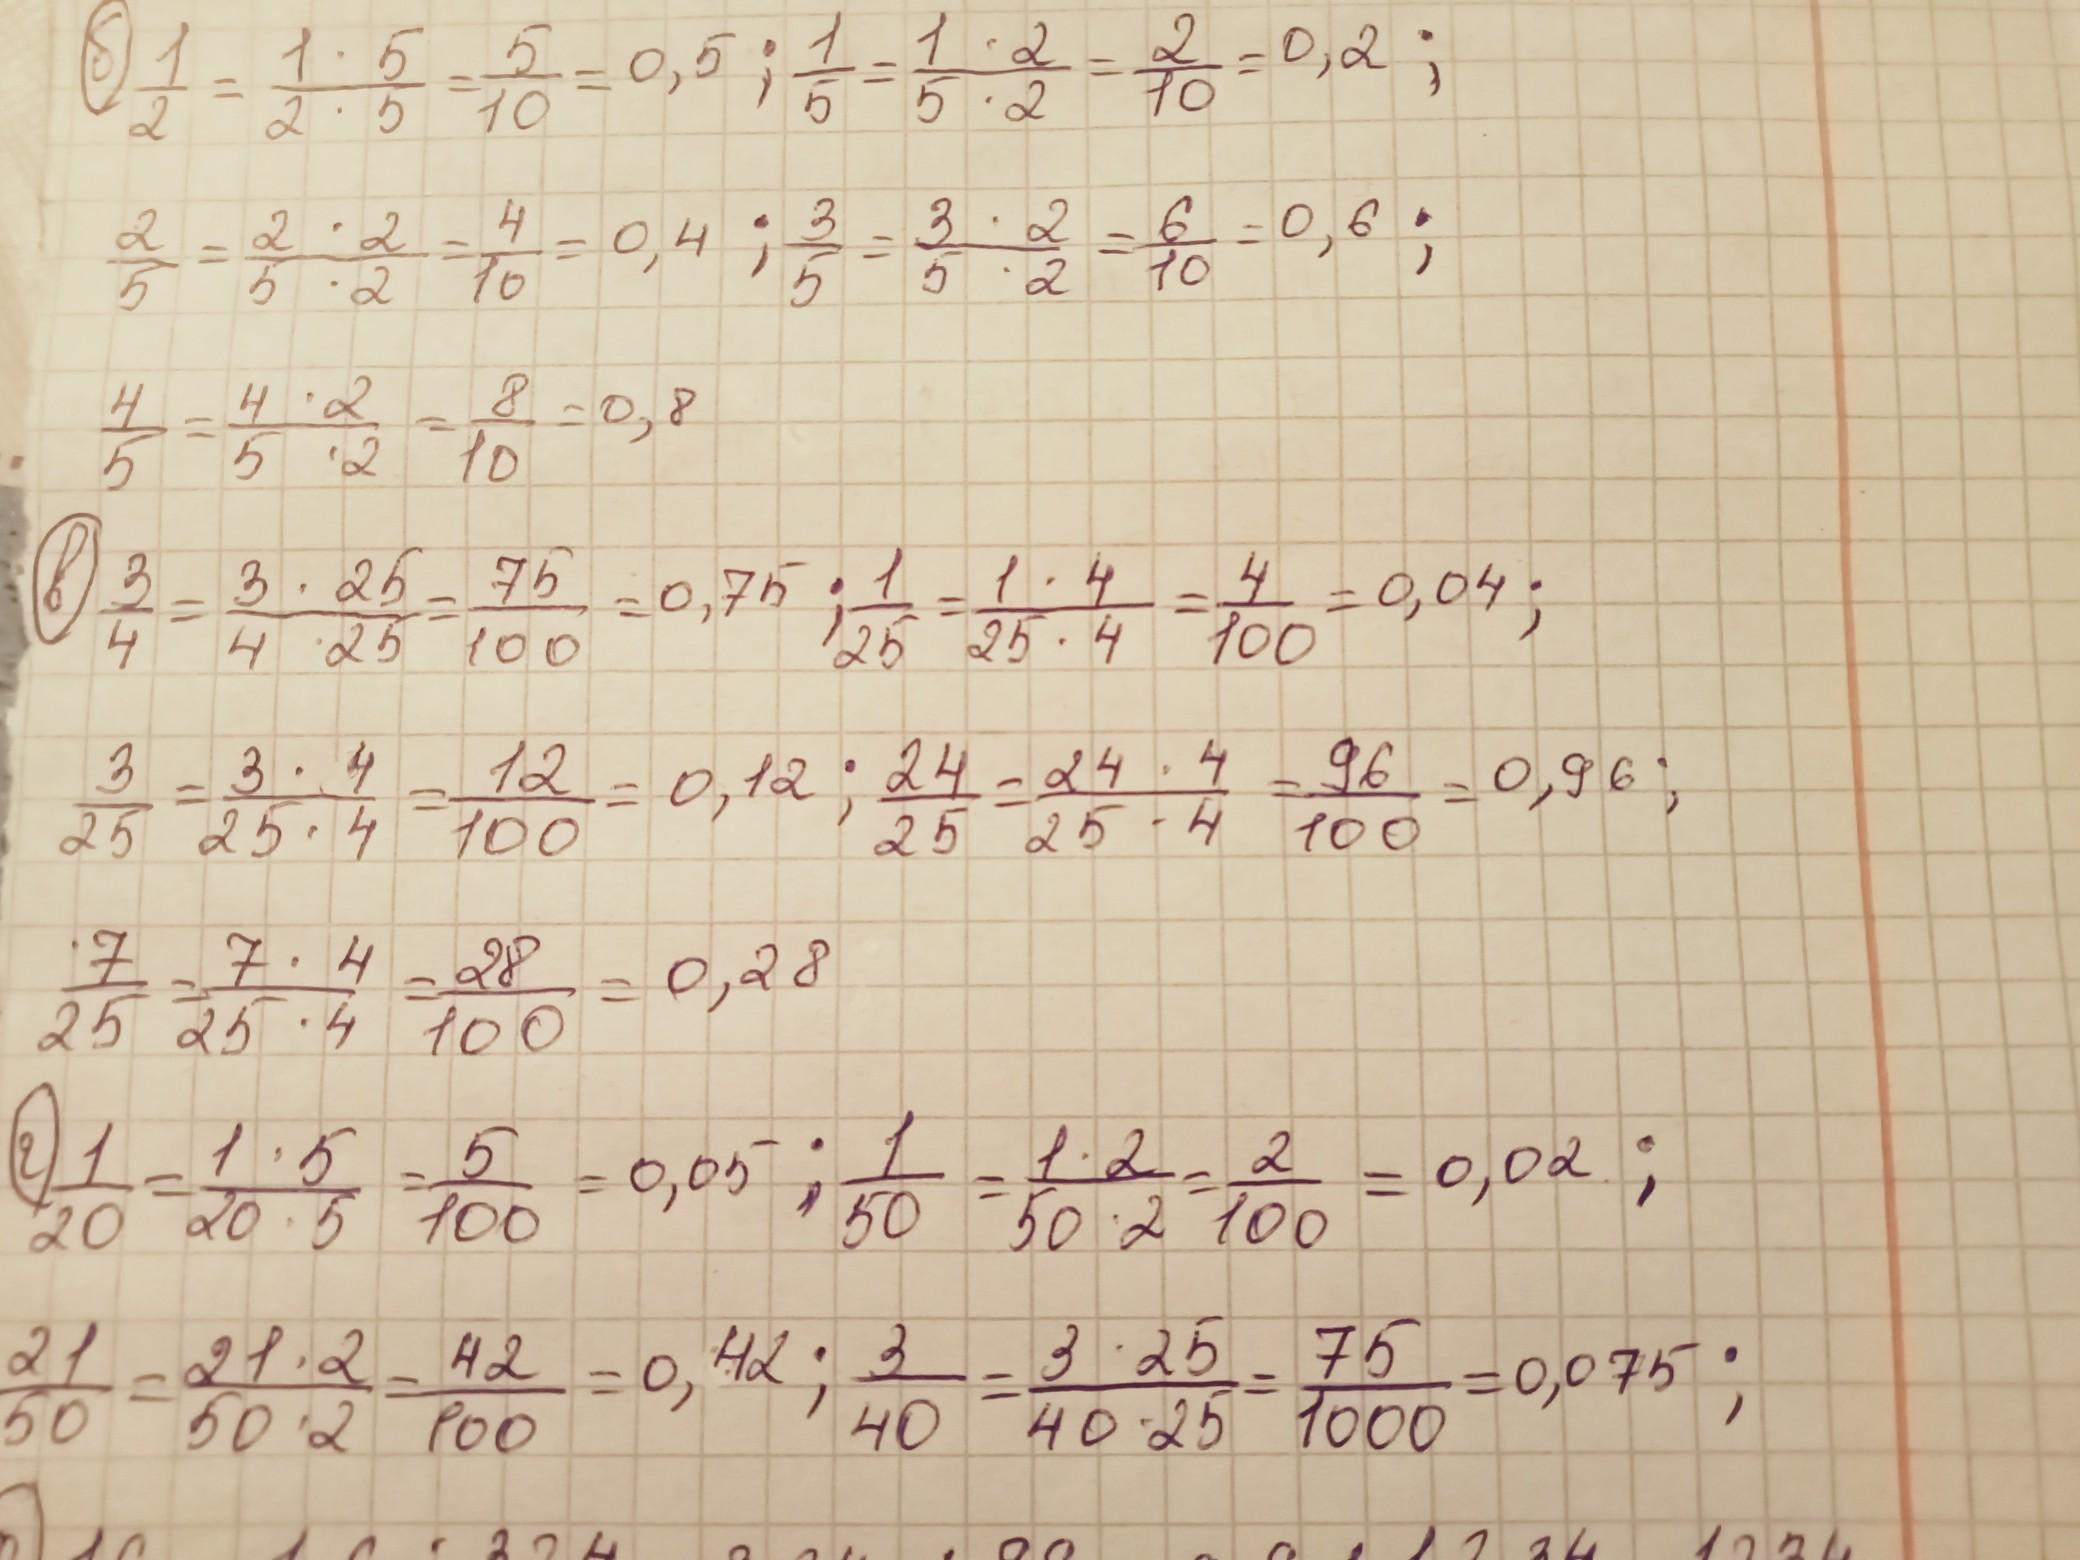 б) 1/2 = 1·5/2·5 = 5/10 = 0,5 ; 1/5 = 1·2/5·2 = 2/10 = 0,2 ;
2/5 = 2·2/5·2 = 4/10 = 0,4 ; 3/5 = 3·2/5·2 = 6/10 = 0,6 ;
4/5 = 4·2/5·2 = 8/10 = 0,8
в) 3/4 = 3·25/4·25 = 75/100 = 0,75 ; 1/25 = 1·4/25·4 = 4/100 = 0,04 ;
3/25 = 3·4/25·4 = 12/100 = 0,12 ; 24/25 = 24·4/25·4 = 96/100 = 0,96 ;
7/25 = 7·4/25·4 = 28/100 = 0,28
г) 1/20 = 1·5/20·5 = 5/100 = 0,05 ; 1/50 = 1·2/50·2 = 2/100 = 0,02 ;
21/50 = 21·2/50·2 = 42/100 = 0,42 ; 3/40 = 3·25/40·25 = 75/1000 = 0,075 ;